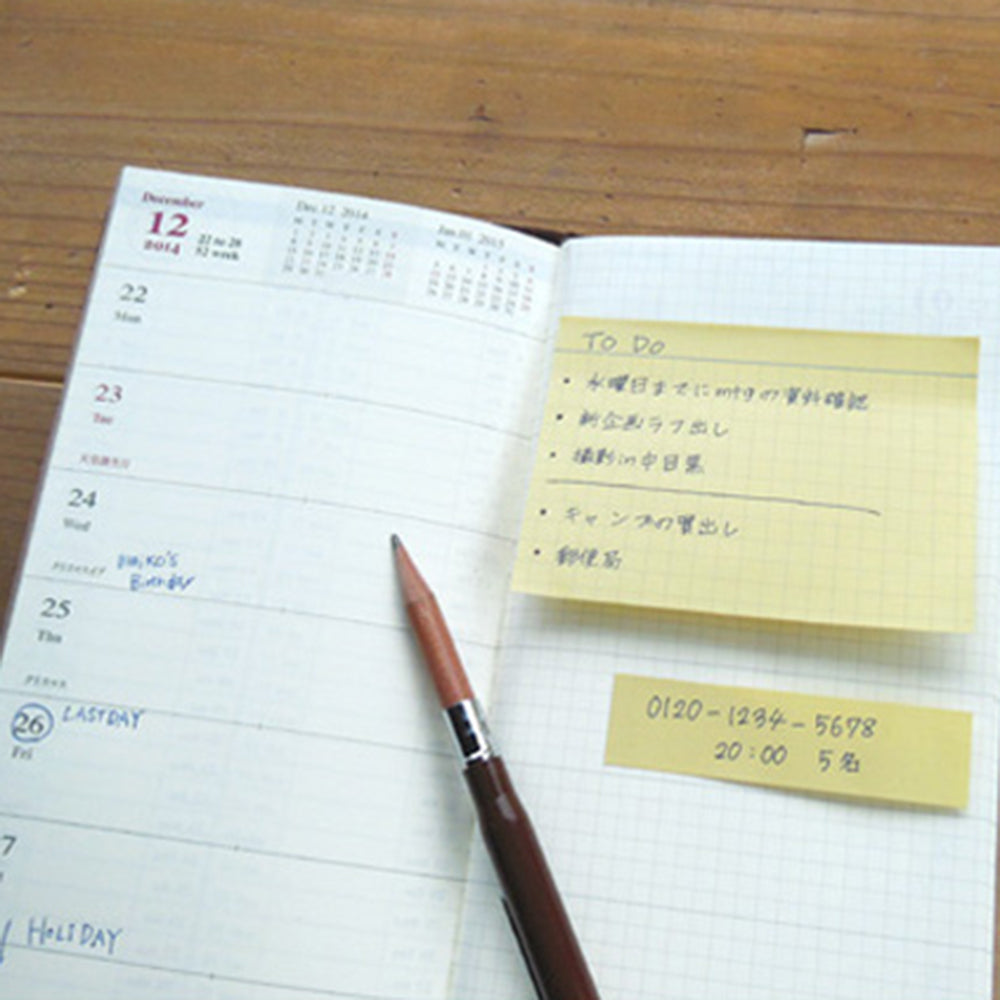 December
12
2014
22 to 28
52 week
Dec.12. 2014
Jan.01. 2015
22
Mon
23
Tue
天皇誕生日
24
Wed
クリスマスイブ
Birthday
25
Thu
クリスマス
26 LASTDAY
Fri
7
HOLIDAY
TO DO
• 水曜日までにmtgの資料確認
• 新企画ラフ出し
• 撮影in中目黒
• キャンプの買出し
• 郵便局
0120-1234-5678
20:00 5名